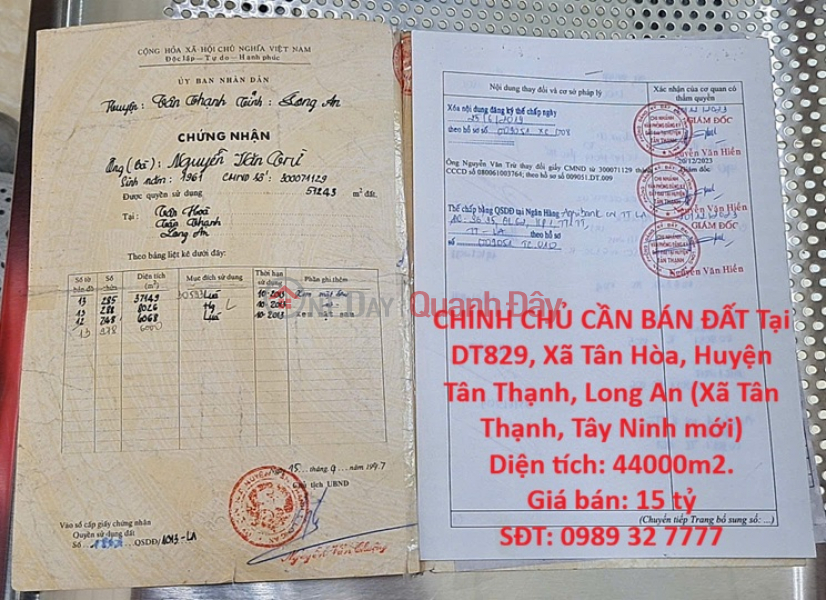 CỘNG HÒA XÃ HỘI CHỦ NGHĨA VIỆT NAM
Độc lập - Tự do - Hạnh phúc
ỦY BAN NHÂN DÂN
Huyện: Tân Thạnh Tỉnh: Long An
CHỨNG NHẬN
Ông (bà): Nguyễn Văn Trừ
Sinh năm: 1961 CMND Số: 300071129
Được quyền sử dụng 57243 m² đất.
Tại: Tân Hoà
Tân Thạnh
Long An
Theo bảng liệt kê dưới đây:
Số tờ bản đồ Số thửa Diện tích (m²) Mục đích sử dụng Thời hạn sử dụng Phần ghi thêm
13 285 37149 Lúa 10-2013
13 288 8026 10-2013
12 248 6068 Lúa 10-2013
13 278 6000
15 tháng 9 năm 1997
Chủ tịch UBND
Vào sổ cấp giấy chứng nhận
Quyền sử dụng đất
Số QSDĐ/1013-LA
Nội dung thay đổi và cơ sở pháp lý
Xác nhận của cơ quan có thẩm quyền
Xóa nội dung đăng ký thế chấp ngày
theo hồ sơ số 009051 XC 008
GIÁM ĐỐC
Nguyễn Văn Hiển
Ông Nguyễn Văn Trừ thay đổi giấy CMND số 300071129 thành
CCCD số 080061003764; theo hồ sơ số 009051.DT.009
20/12/2023
Giám đốc
Thế chấp bằng QSDĐ tại Ngân Hàng Agribank CN TT LA
TT - LA theo hồ sơ
số 009051 TC 010
GIÁM ĐỐC
Nguyễn Văn Hiển
ONE DAY Quanh Đây
CHÍNH CHỦ CẦN BÁN ĐẤT Tại
DT829, Xã Tân Hòa, Huyện
Tân Thạnh, Long An (Xã Tân
Thạnh, Tây Ninh mới)
Diện tích: 44000m2.
Giá bán: 15 tỷ
SĐT: 0989 32 7777
(Chuyển tiếp Trang bổ sung số: ...)